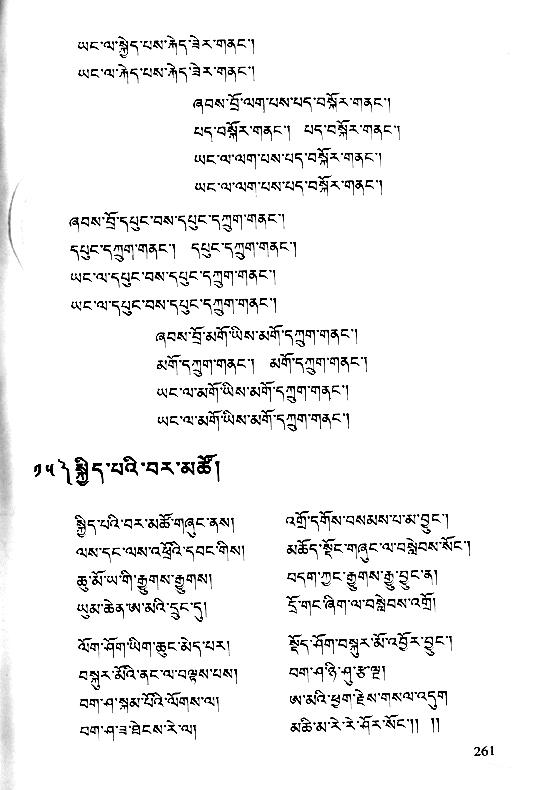 ཡང་ལ་སྐེད་པས་རྐེད་ཟེར་གནང་།
ཡང་ལ་རྐེད་པས་རྐེད་ཟེར་གནང་།
ཞབས་བྲོ་ལག་པས་པད་བསྐོར་གནང་།
པད་བསྐོར་གནང་། པད་བསྐོར་གནང་།
ཡང་ལ་ལག་པས་པད་བསྐོར་གནང་།
ཡང་ལ་ལག་པས་པད་བསྐོར་གནང་།
ཞབས་བྲོ་དཔུང་བས་དཔུང་དཀྲུག་གནང་།
དཔུང་དཀྲུག་གནང་། དཔུང་དཀྲུག་གནང་།
ཡང་ལ་དཔུང་བས་དཔུང་དཀྲུག་གནང་།
ཡང་ལ་དཔུང་བས་དཔུང་དཀྲུག་གནང་།
ཞབས་བྲོ་མགོ་ཡིས་མགོ་དཀྲུག་གནང་།
མགོ་དཀྲུག་གནང་། མགོ་དཀྲུག་གནང་།
ཡང་ལ་མགོ་ཡིས་མགོ་དཀྲུག་གནང་།
ཡང་ལ་མགོ་ཡིས་མགོ་དཀྲུག་གནང་།
༡༥༽ སྐྱིད་པའི་བར་མཚོ།
སྐྱིད་པའི་བར་མཚོ་གཞུང་ནས། འགྲོ་དགོས་བསམས་པ་མ་བྱུང་།
ལས་དང་ལས་འཕྲོའི་དབང་གིས། མཆོད་སྡོང་གཞུང་ལ་བསླེབས་སོང་།
ཆུ་མོ་ཡ་གི་རྒྱུགས་རྒྱུགས། བདག་ཀྱང་རྒྱུགས་རྒྱུ་བྱུང་ན།
ཡུམ་ཆེན་ཨ་མའི་དྲུང་དུ། དྲོ་གང་ཞིག་ལ་བསླེབས་འགྲོ།
ལོག་ཤོག་ཡིག་ཆུང་མེད་པར། སྡོད་ཤོག་བསྐུར་མོ་འབྱོར་བྱུང་།
བསྐུར་མོའི་ནང་ལ་བལྟས་པས། བག་ཤ་ཉི་ཤུ་རྩ་ལྔ།
བག་ཤ་སྐམ་པོའི་ལོགས་ལ། ཨ་མའི་ཕྱག་རྗེས་གསལ་འདུག
བག་ཤ་ཟ་ཐེངས་རེ་ལ། མཆི་མ་རེ་རེ་ཤོར་སོང་།། །།
261